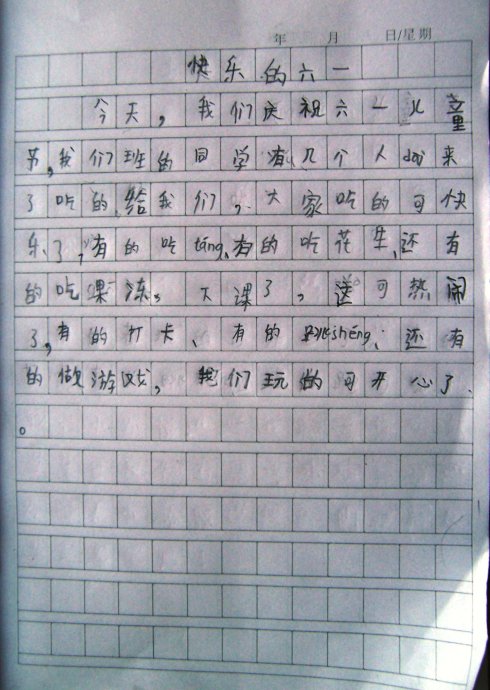 年 月 日/星期
快乐的六一
今天，我们庆祝六一儿童
节，我们班的同学有几个人dài来
了吃的，给我们，大家吃的可快
乐了，有的吃táng、有的吃花生、还有
的吃果冻。下课了，可热闹
了，有的打卡、有的跳shéng、还有
的做游戏，我们玩的可开心了
。